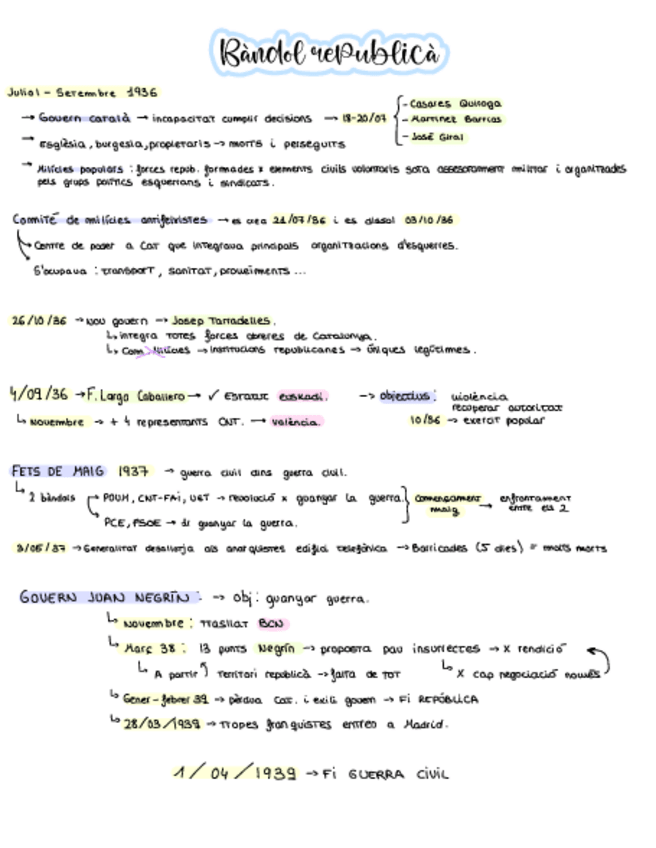 Bàndol republicà
Juliol - Setembre 1936
→ Govern català → incapacitat cumplir decisions → 18-20/07 { - Casares Quiroga
- Martínez Barrios
- José Giral
→ Església, burgesia, propietaris → morts i perseguits
→ Milícies populars : forces repub. formades x elements civils voluntaris sota assessorament militar i organitzades
pels grups polítics esquerrans i sindicats.
Comitè de milícies antifeixistes → es crea 21/07/36 i es dissol 03/10/36
→ Centre de poder a Cat que integrava principals organitzacions d'esquerres.
S'ocupava : transport, sanitat, proveïments ...
26/10/36 → Nou govern → Josep Tarradelles.
↳ integra totes forces obreres de Catalunya.
↳ Com Milícies → institucions republicanes → úniques legítimes.
4/09/36 → F. Largo Caballero → ✓ Estatut euskadi. → objectius : violència
recuperar autoritat
↳ Novembre → + 4 representants CNT. → València. 10/36 → exèrcit popular
FETS DE MAIG 1937 → guerra civil dins guerra civil.
↳ 2 bàndols → POUM, CNT-FAI, UGT → revolució x guanyar la guerra. } començament maig → enfrontament entre els 2
→ PCE, PSOE → guanyar la guerra.
3/05/37 → Generalitat desallotja als anarquistes edifici telefònica → Barricades (5 dies) = molts morts
GOVERN JUAN NEGRÍN : → obj : guanyar guerra.
↳ Novembre : trasllat BCN
↳ Març 38 : 13 punts Negrín → proposta pau insurrectes → X rendició
↳ A partir ↑ territori republicà → falta de tot ↳ X cap negociació només
↳ Gener - febrer 39 → pèrdua Cat. i exili govern → FI REPÚBLICA
↳ 28/03/1939 → Tropes franquistes entren a Madrid.
1/04/1939 → FI GUERRA CIVIL